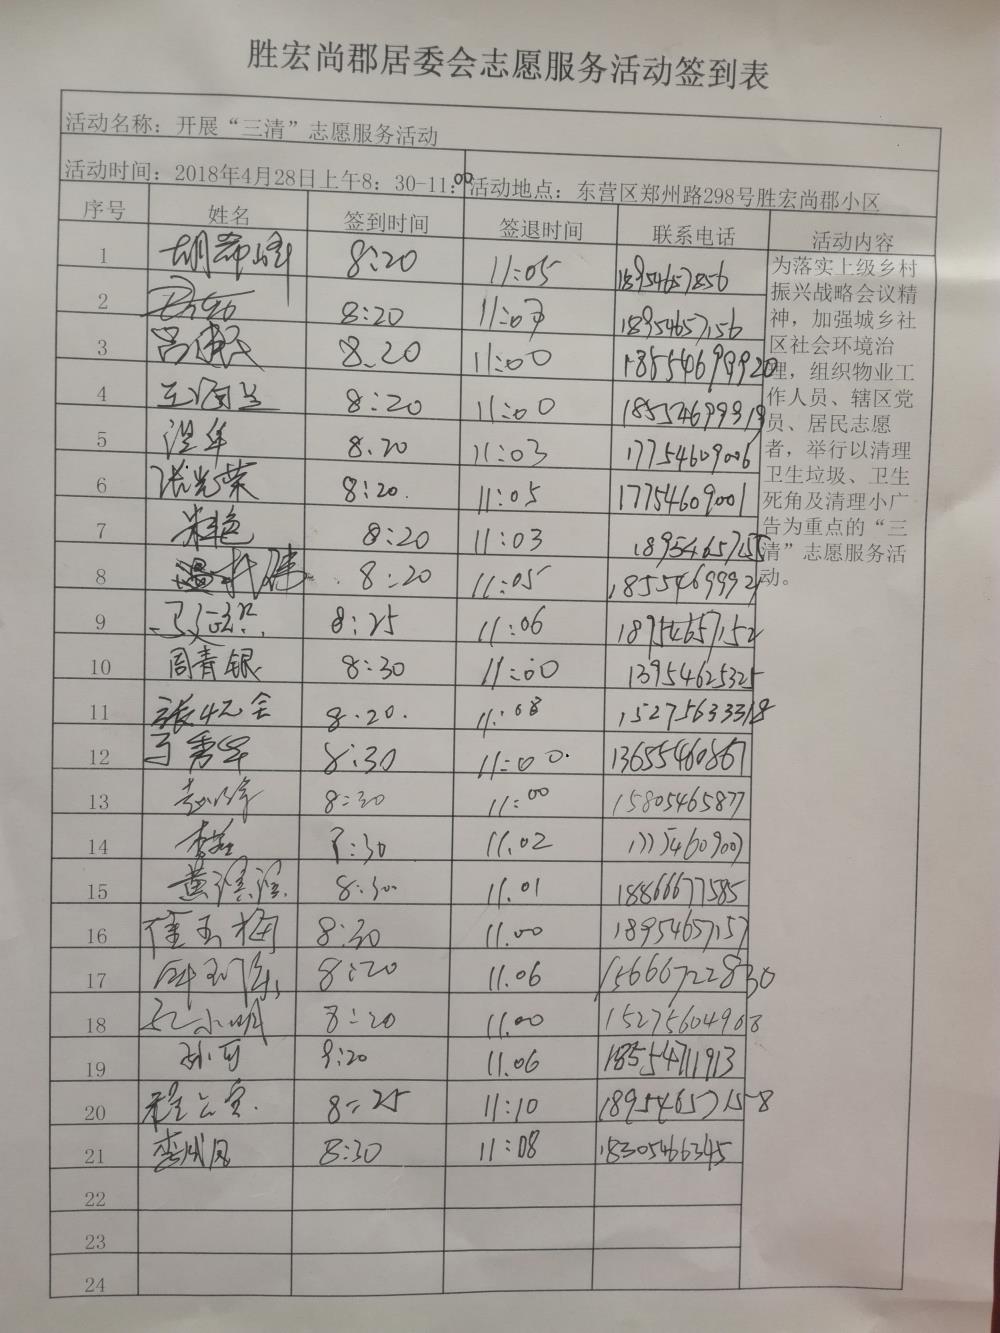 胜宏尚郡居委会志愿服务活动签到表
活动名称：开展“三清”志愿服务活动
活动时间：2018年4月28日上午8：30-11：00 活动地点：东营区郑州路298号胜宏尚郡小区
序号 姓名 签到时间 签退时间 联系电话 活动内容
为落实上级乡村
振兴战略会议精
神，加强城乡社
区社会环境治
理，组织物业工
作人员、辖区党
员、居民志愿
者，举行以清理
卫生垃圾、卫生
死角及清理小广
告为重点的“三
清”志愿服务活
动。
1 8:20 11:05 18954657856
2 8:20 11:03 18954657156
3 8.20 11:00 18554699920
4 8:20 11:00 18554699919
5 8.20 11:03 17754609006
6 张光荣 8:20. 11:05 17754609001
7 8:20 11:03 18954657155
8 8:20 11:05 18554699921
9 8:25 11:06 18954657152
10 周青银 8:30 11:00 13954625325
11 8.20. 11:08 15275633318
12 8:30 11:00. 13655460867
13 8:30 11:00 15805465877
14 8:30 11.02
15 8:30 11.01 18866677585
16 8:30 11.00 18954657157
17 8:20 11.06 15666722830
18 孔小明 8:20 11.00 15275604908
19 孙可 8:20 11.06 18554711913
20 8:25 11:10 18954657158
21 李成凤 8:30 11:08 18305466345
22
23
24